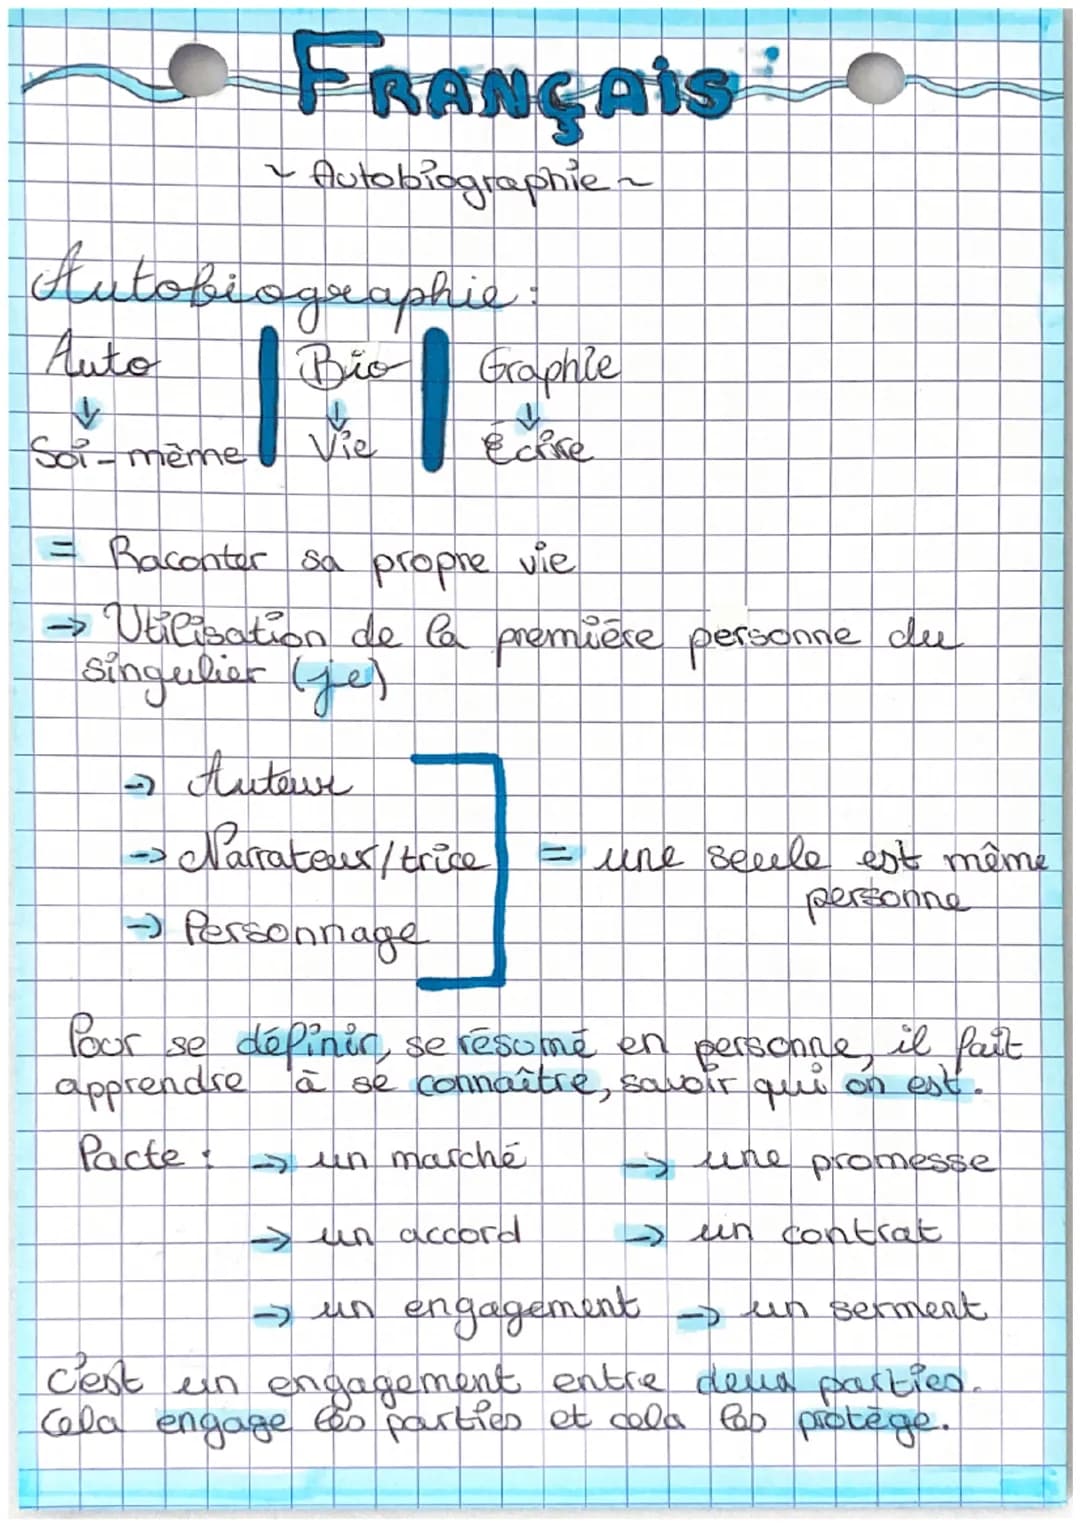 FRANÇAIS
~ Autobiographie ~
Autobiographie :
Auto Bio Graphie
↓ ↓ ↓
Soi-même Vie Écrire
= Raconter sa propre vie
→ Utilisation de la première personne du
singulier (je)
→ Auteur
→ Narrateur/trice = une seule est même
personne
→ Personnage
Pour se définir, se résumé en personne, il fait
apprendre à se connaître, savoir qui on est.
Pacte : → un marché → une promesse
→ un accord → un contrat
→ un engagement → un serment
c'est un engagement entre deux parties.
Cela engage les parties et cela les protège.